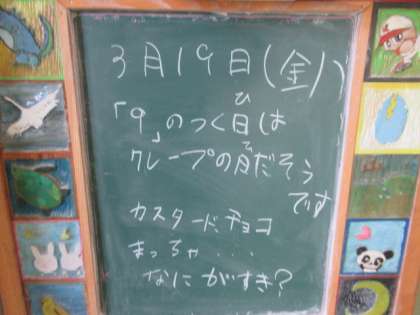 3月19日(金)
「9」のつく日は
ひ
クレープの日だそう
ひ
です
カスタード チョコ
まっちゃ...
なにがすき?